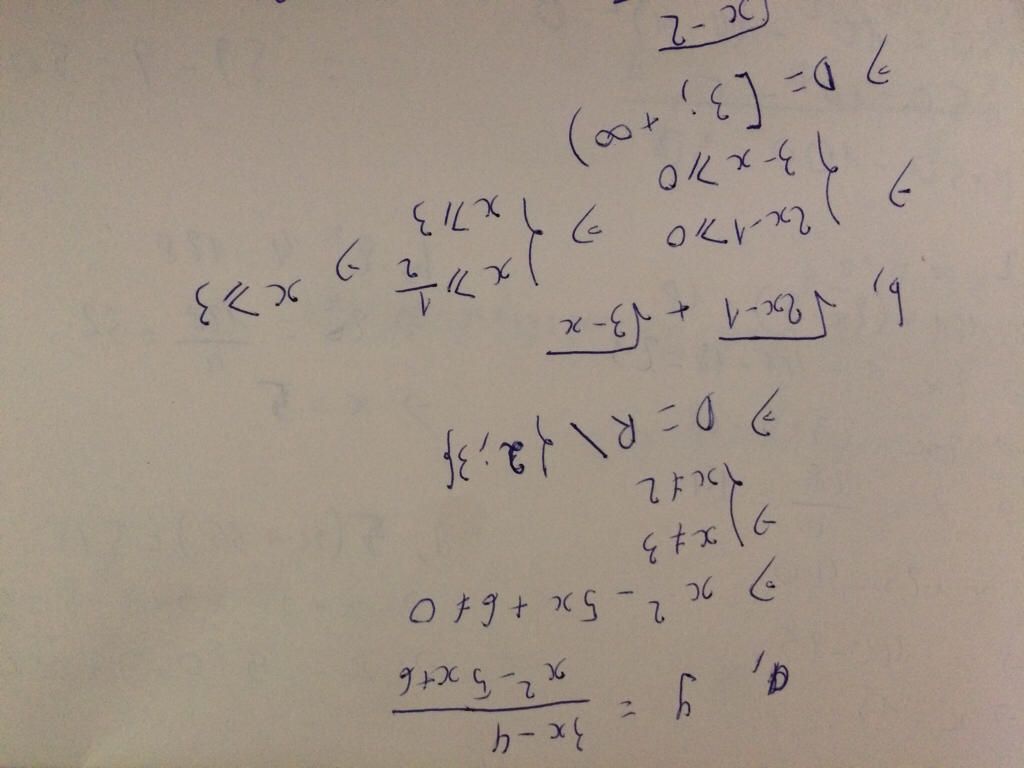 a, y = \frac{3x-4}{x^2-5x+6}
⇒ x^2 - 5x + 6 ≠ 0
⇒ { x ≠ 3
x ≠ 2
⇒ D = R \ {2; 3}
b, √(2x-1) + √(3-x)
⇒ { 2x-1 ⩾ 0 ⇒ { x ⩾ \frac{1}{2} ⇒ x ⩾ 3
3-x ⩾ 0 x ⩾ 3
⇒ D = [3; +∞)
√(x-2)